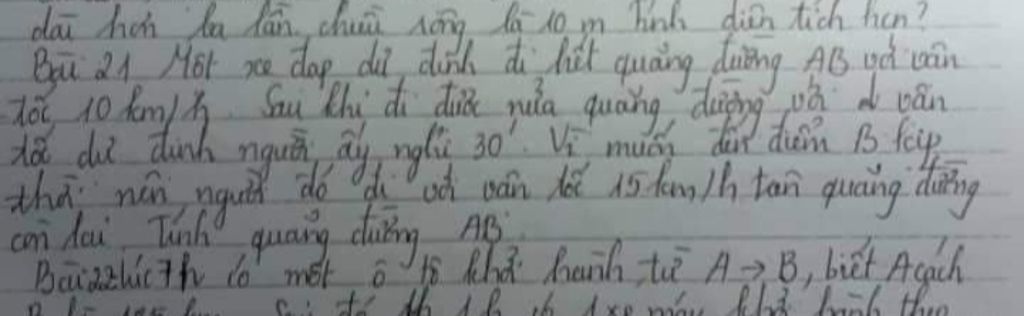 dài hơn ba lần chiều rộng là 10 m Tính diện tích hcn?
Bài 21 Một xe đạp dự định đi hết quãng đường AB với vận
tốc 10 km/h. Sau khi đi được nửa quãng đường với vận
tốc dự định người ấy nghỉ 30' Vì muốn đến điểm B kịp
thời nên người đó đi với vận tốc 15 km/h trên quãng đường
còn lại Tính quãng đường AB.
Bài 22 lúc 7h có một ô tô khởi hành từ A → B, biết A cách
1 xe máy khởi hành